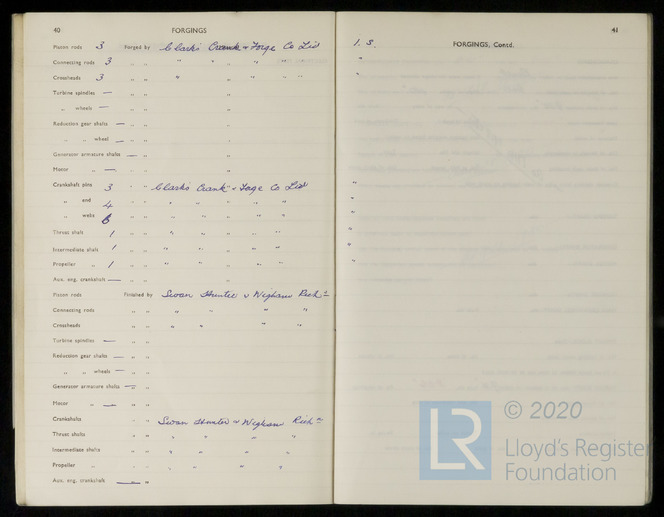 40 FORGINGS
Piston rods 3 Forged by Clarks Crank & Forge Co Ltd
Connecting rods 3 " " " " " " "
Crossheads 3 " " " " " " "
Turbine spindles — " " "
" wheels — " " "
Reduction gear shafts — " " "
" " wheel — " " "
Generator armature shafts — " " "
Motor " — " " "
Crankshaft pins 3 " " Clarks Crank & Forge Co Ltd
" end 4 " " " " " " "
" webs 6 " " " " " " "
Thrust shaft 1 " " " " " " "
Intermediate shaft 1 " " " " " " "
Propeller " 1 " " " " " " "
Aux. eng. crankshaft — " "
Piston rods Finished by Swan Hunter & Wigham Rich
Connecting rods " " " " " "
Crossheads " " " " " "
Turbine spindles — " "
Reduction gear shafts — " "
" " wheels — " "
Generator armature shafts — " "
Motor " — " "
Crankshafts " " Swan Hunter & Wigham Rich
Thrust shafts " " " " " "
Intermediate shafts " " " " " "
Propeller " " " " " " "
Aux. eng. crankshaft — "
41
FORGINGS, Contd.
1. 3.
"
"
"
"
"
"
"
"
LR
© 2020
Lloyd's Register
Foundation